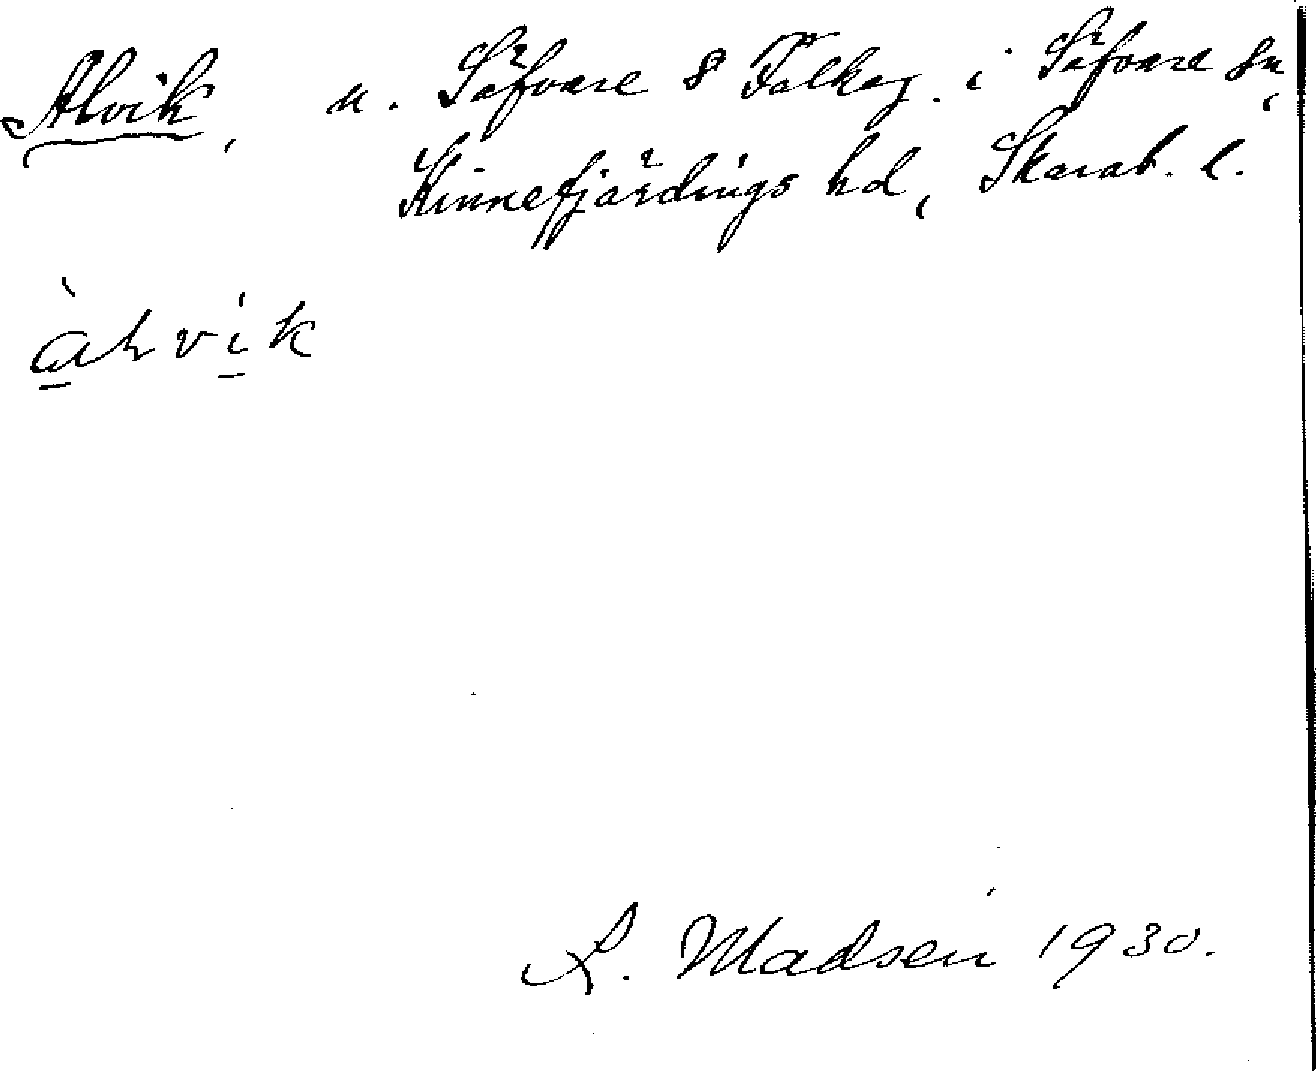 Alvik, u. Säfvare 8 Falkag. i Säfvare sn,
Kinnefjärdings hd, Skarab. l.
àlvik
L. Madsen 1930.